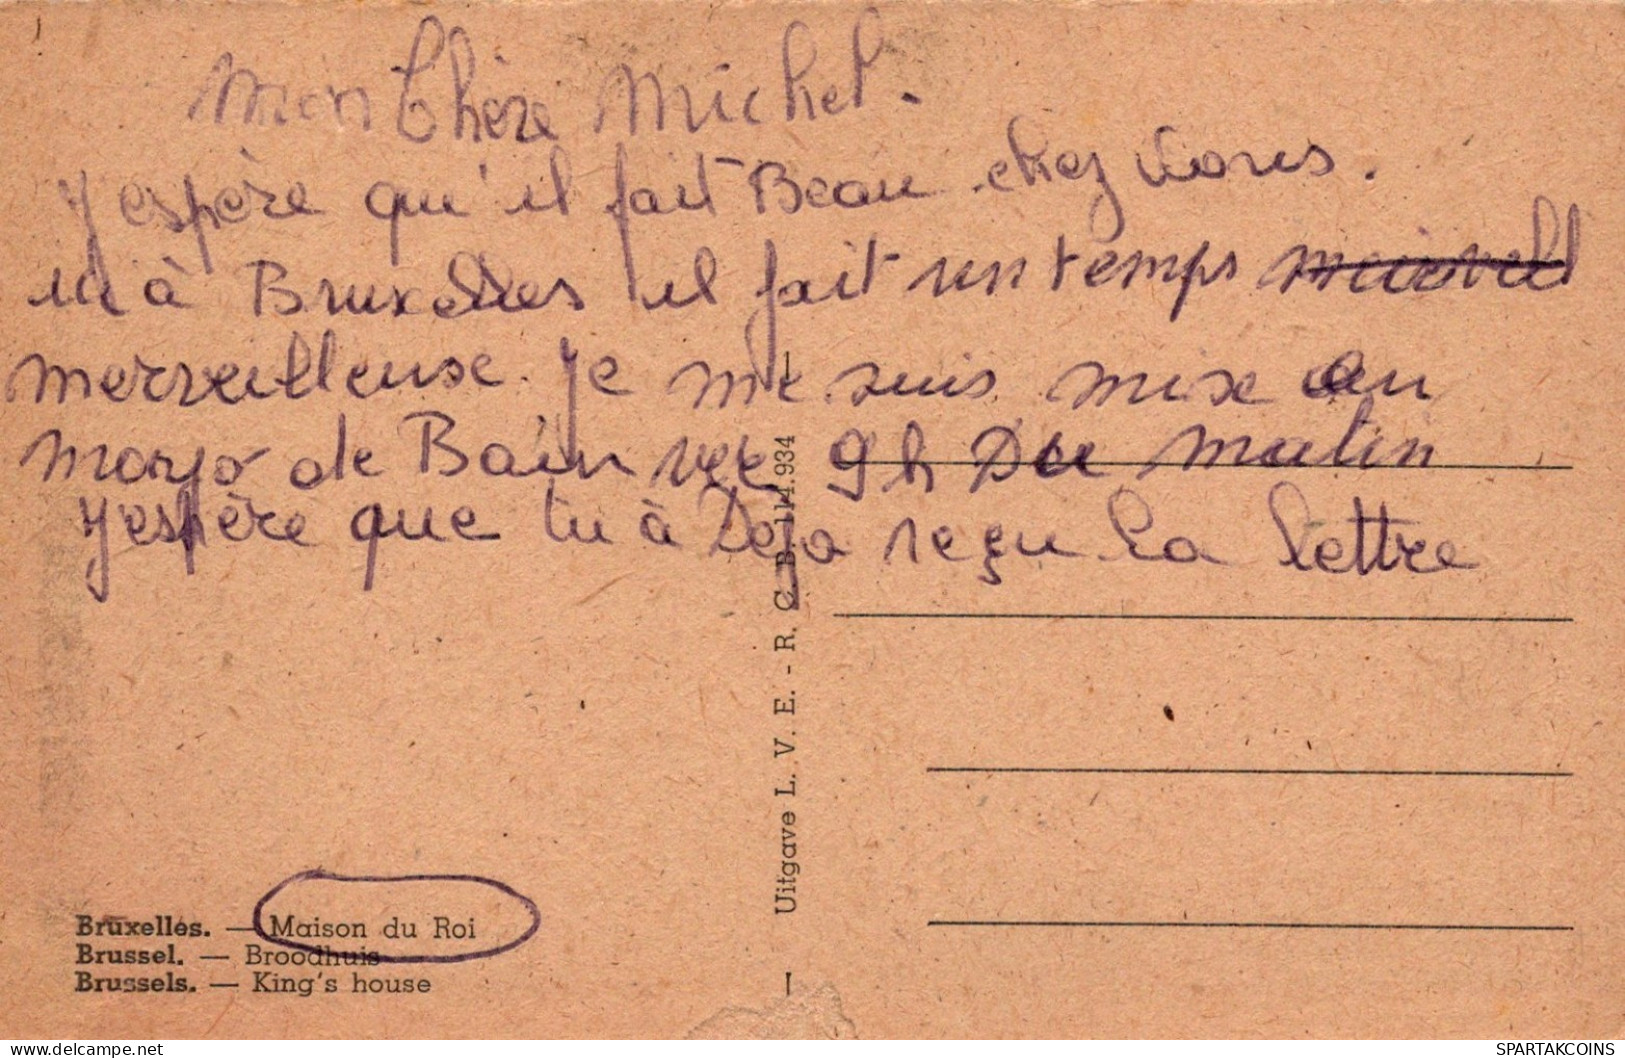 Mon Chère Michel.
J'espère qu'il fait Beau chez vous.
ici à Bruxelles il fait un temps
merveilleuse. Je me suis mise en
mayo de Bain vee 9 h Du matin
J'espère que tu à Deja reçu la lettre
Bruxelles. — Maison du Roi
Brussel. — Broodhuis
Brussels. — King's house
Uitgave L. V. E. - R. C. B. 114.934
SPARTAKCOINS
delcampe.net